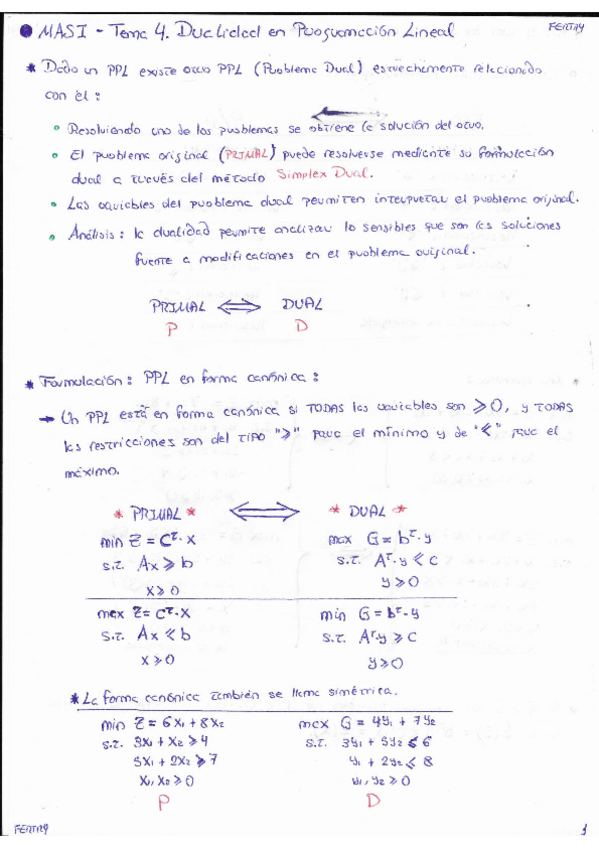 MASI - Tema 4. Dualidad en Programación Lineal
FERTRY
* Dado un PPL existe otro PPL (Problema Dual) estrechamente relacionado
con él:
• Resolviendo uno de los problemas se obtiene la solución del otro.
• El problema original (PRIMAL) puede resolverse mediante su formulación
dual a través del método Simplex Dual.
• Las variables del problema dual permiten interpretar el problema original.
• Análisis: la dualidad permite analizar lo sensibles que son las soluciones
frente a modificaciones en el problema original.
PRIMAL ⟺ DUAL
P D
* Formulación: PPL en forma canónica:
→ Un PPL está en forma canónica si TODAS las variables son ≥ 0, y TODAS
las restricciones son del TIPO "≥" para el mínimo y de "≤" para el
máximo.
* PRIMAL * ⟺ * DUAL *
min Z = Cᵀ· X max G = bᵀ· y
s.t. Ax ≥ b s.t. Aᵀ· y ≤ c
x ≥ 0 y ≥ 0
max Z = Cᵀ· X min G = bᵀ· y
s.t. Ax ≤ b s.t. Aᵀy ≥ C
x ≥ 0 y ≥ 0
* La forma canónica también se llama simétrica.
min Z = 6x₁ + 8x₂ max G = 4y₁ + 7y₂
s.t. 3x₁ + x₂ ≥ 4 s.t. 3y₁ + 5y₂ ≤ 6
5x₁ + 2x₂ ≥ 7 y₁ + 2y₂ ≤ 8
x₁, x₂ ≥ 0 y₁, y₂ ≥ 0
P D
FERTRY 1